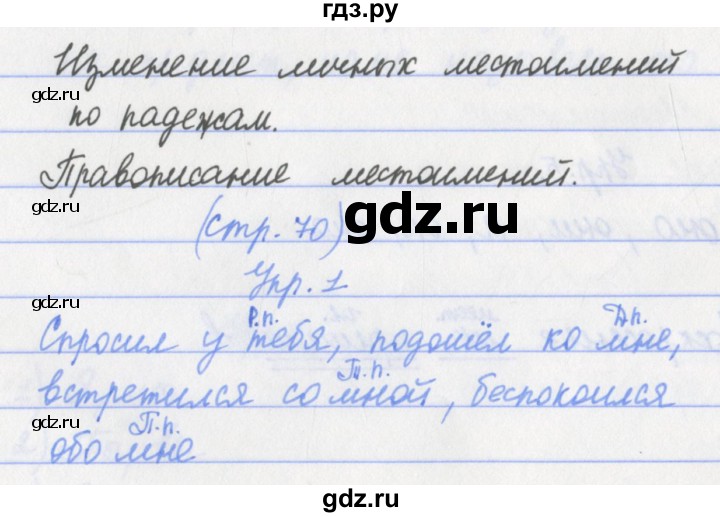 гдз.ру
Изменение личных местоимений
gdz.ru
по падежам.
gdz.ru
Правописание местоимений.
gdz.ru
(стр. 70)
gdz.ru
Упр. 1
gdz.ru
Р.п. Д.п.
Спросил у тебя, подошёл ко мне,
gdz.ru
Т.п.
встретился со мной, беспокоился
gdz.ru
П.п.
обо мне
gdz.ru
gdz.ru